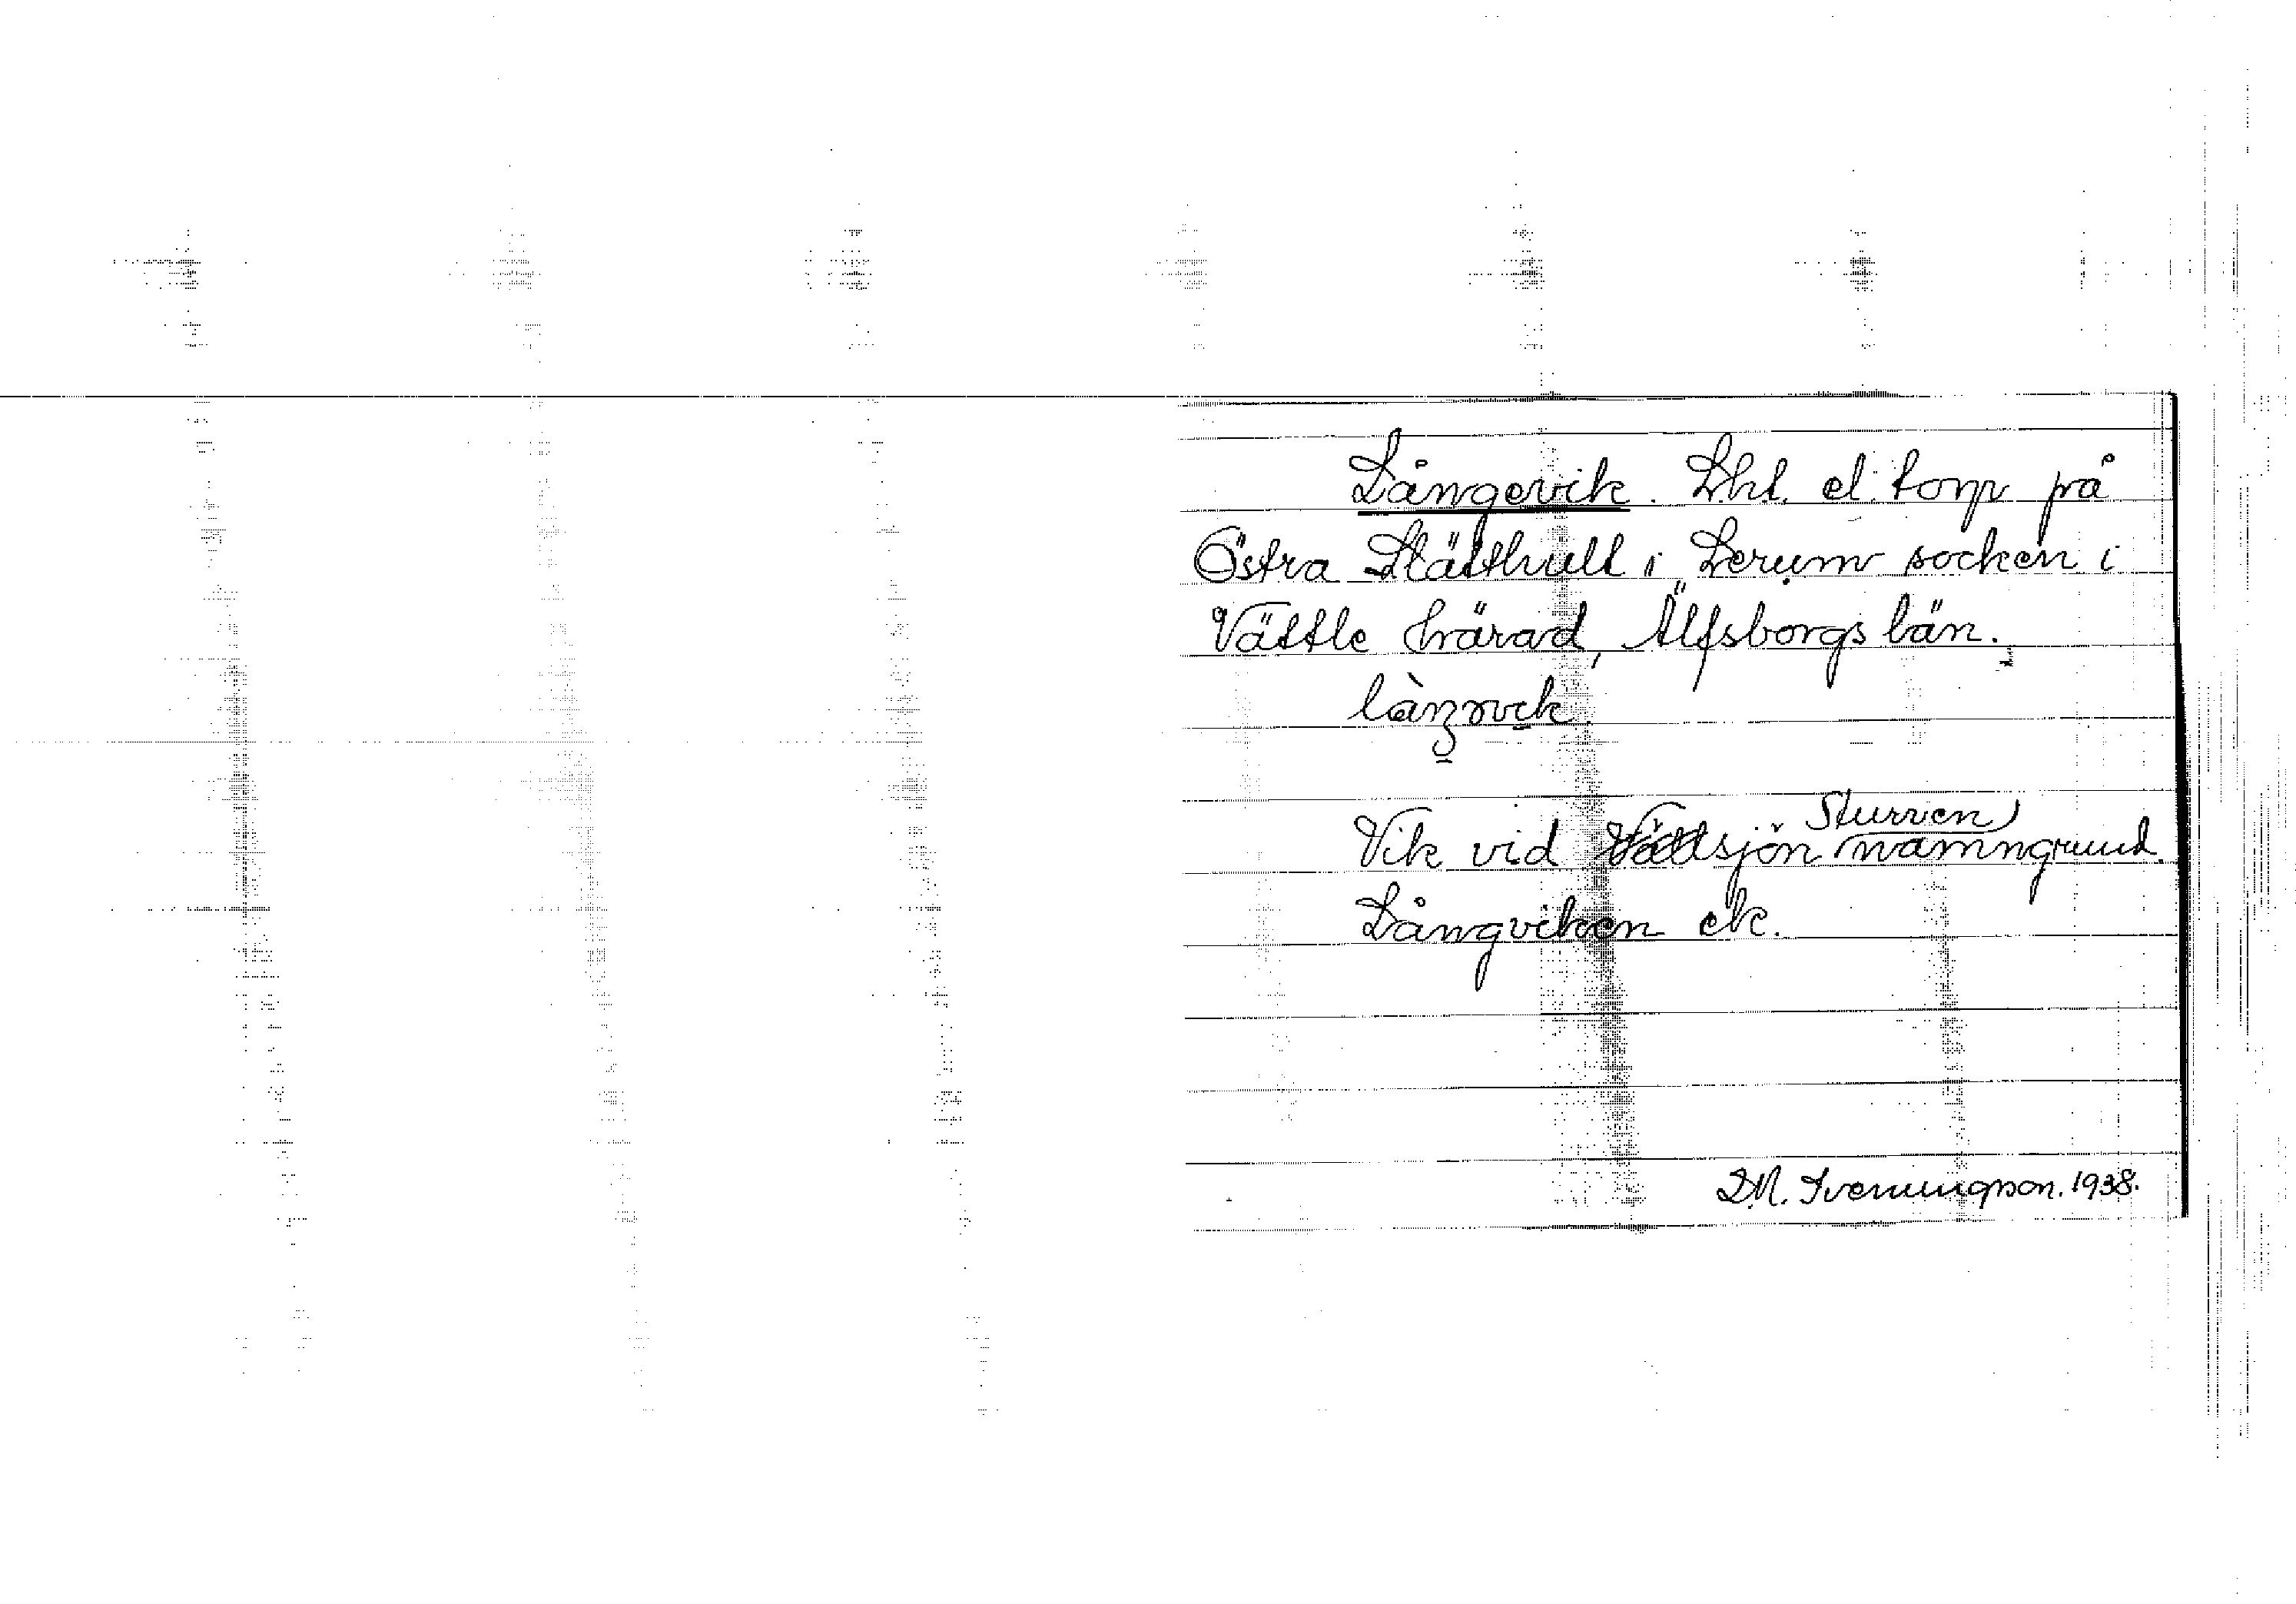 Långevik. Lht. el. torp på
Östra Slätthult i Lerum socken i
Vättle härad, Älfsborgs län.
Sturven)
Vik vid sjön namngrund.
Långviken etc.
D.M. Svenningson. 1938.